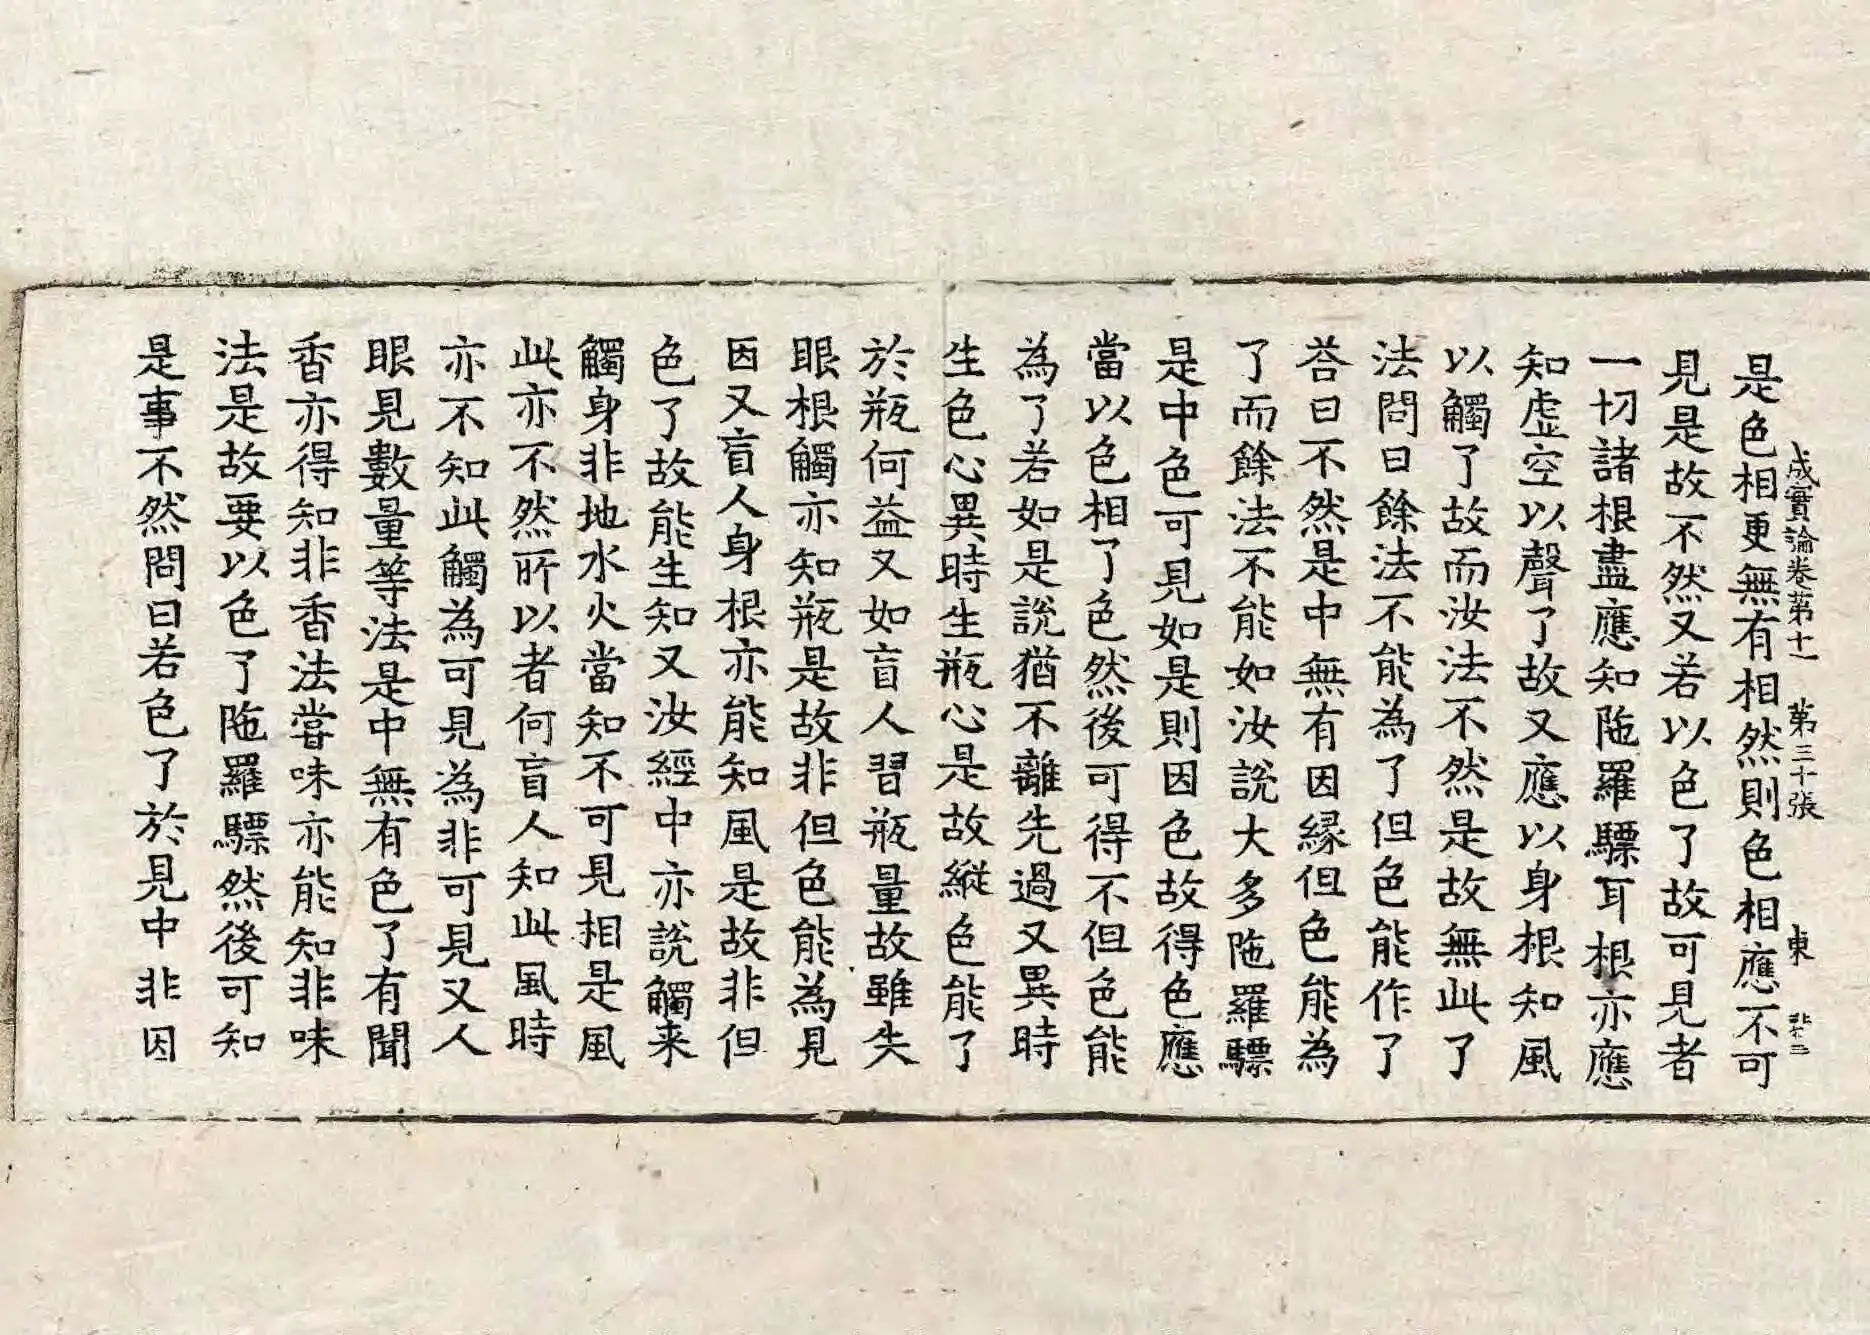 成實論卷第十一 第三十張 東
是色相更無有相然則色相應不可
見是故不然又若以色了故可見者
一切諸根盡應知陁羅驃耳根亦應
知虛空以聲了故又應以身根知風
以觸了故而汝法不然是故無此了
法問曰餘法不能為了但色能作了
荅曰不然是中無有因縁但色能為
了而餘法不能如汝說大多陁羅驃
是中色可見如是則因色故得色應
當以色相了色然後可得不但色能
為了若如是說猶不離先過又異時
生色心異時生瓶心是故縱色能了
於瓶何益又如盲人習瓶量故雖失
眼根觸亦知瓶是故非但色能為見
因又盲人身根亦能知風是故非但
色了故能生知又汝經中亦說觸来
觸身非地水火當知不可見相是風
此亦不然所以者何盲人知此風時
亦不知此觸為可見為非可見又人
眼見數量等法是中無有色了有聞
香亦得知非香法甞味亦能知非味
法是故要以色了陁羅驃然後可知
是事不然問曰若色了於見中非因